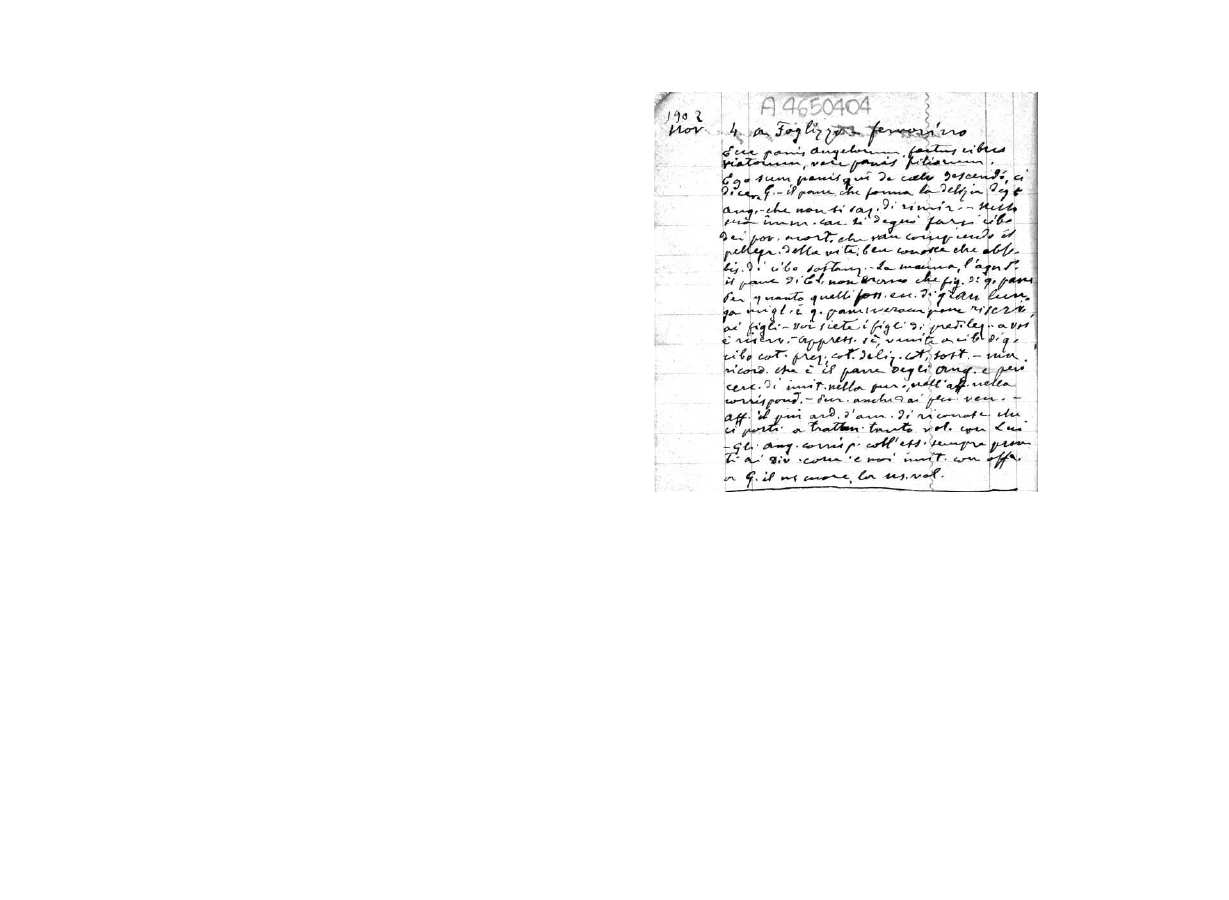 A 4650404
1902
Nov. 4. a Foglizzo femminino
Ecce panis Angelorum, factus cibus
viatorum, vere panis filiorum.
Ego sum panis qui de cælo descendi, ci
dicea G. - il pane che forma la delizia degli
ang. - che non si saz. di rimir. -
sua imm. car. si degnò farsi cibo
dei pov. mort. che van compiendo il
pellegr. della vita, ben conosce che abb.
bis. di cibo sostanz. - La manna, l'agn.
il pane di El. non erano che fig. di q. pane
Per quanto quelli foss. ecc. di gran lun-
ga migl. è q. pane riserv.
ai figli - voi siete i figli di predilez. a voi
è riserv. - Appress. sì, venite a cib. di q.
cibo cot. prez. cot. deliz. cot. sost. - ma
ricord. che è il pane degli Ang. e però
cerc. di imit. nella pur. nell'aff. nella
corrispond. - Pur. anche dai pec. ven. -
aff. il più ard. d'am. di riconosc. che
ci portò a trattar tanto vol. con Lui
- Gli ang. corrisp. coll'ess. sempre pron-
ti ai Div. com. e noi imit. con offr.
a G. il ns cuore, la ns. vol.